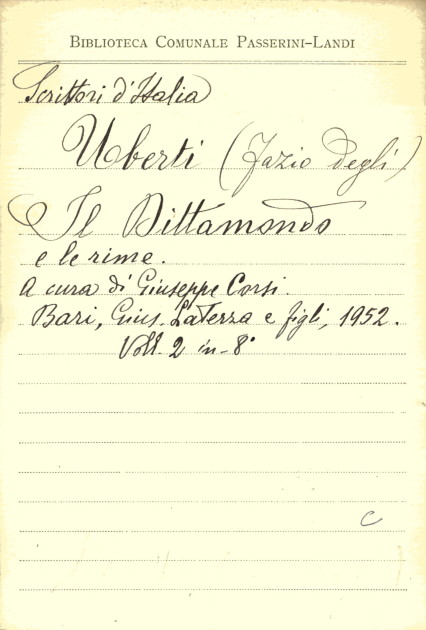 BIBLIOTECA COMUNALE PASSERINI-LANDI
Scrittori d'Italia
Uberti (Fazio degli)
Il Dittamondo
e le rime.
A cura di Giuseppe Corsi.
Bari, Gius. Laterza e figli, 1952.
Voll. 2 in-8°
C